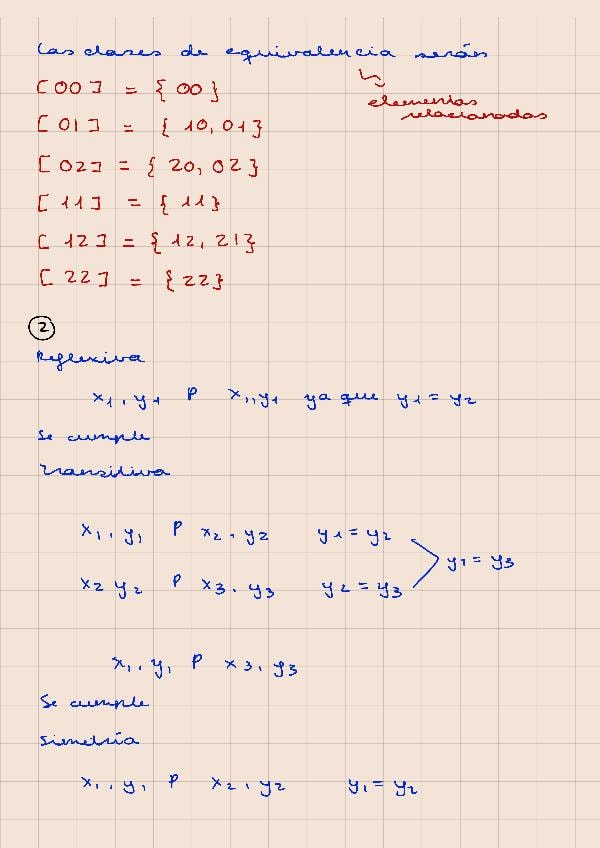 Las clases de equivalencia serán
[00] = {00}
elementos
relacionados
[01] = {10,01}
[02] = {20,02}
[11] = {11}
[12] = {12,21}
[22] = {22}
2
Reflexiva
x1,y1 P x1,y1 ya que y1=y2
Se cumple
Transitiva
x1,y1 P x2,y2 y1=y2
y1=y3
x2 y2 P x3,y3 y2=y3
x1,y1 P x3,y3
Se cumple
Simetría
x1,y1 P x2,y2 y1=y2